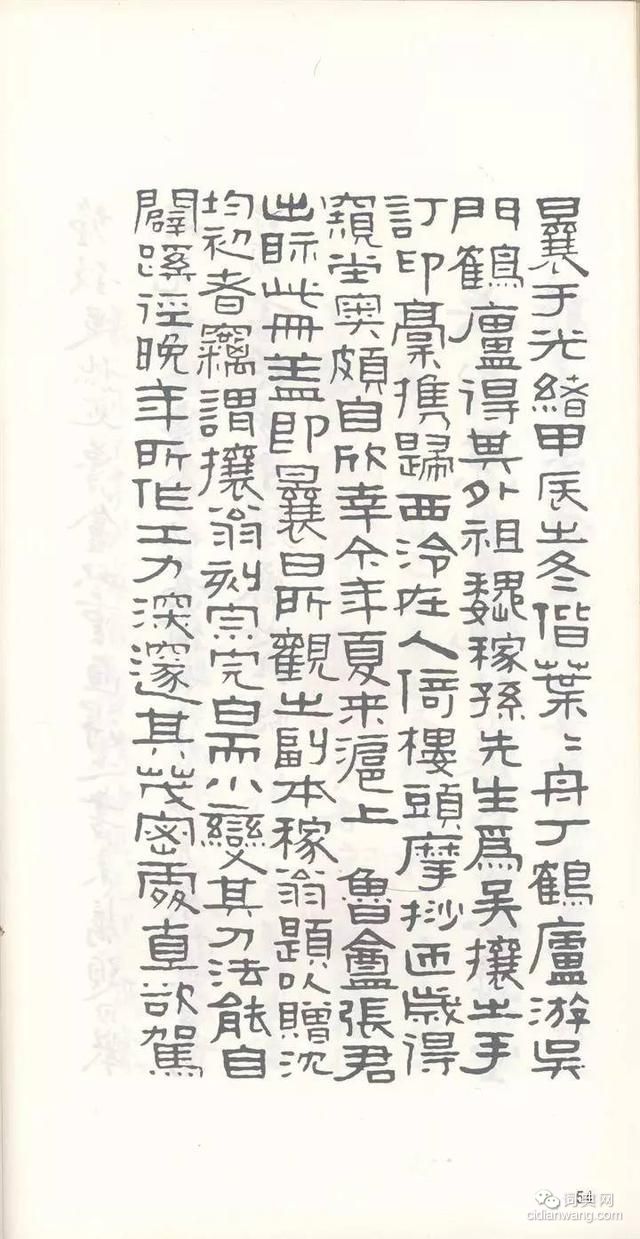 曩于光緒甲辰之冬偕葉〻舟丁鶴廬游吳
門鶴廬得其外祖魏稼孫先生爲吳攘之手
訂印稾携歸西泠在人倚樓頭摩挱匝歲得
窺堂奧頗自欣幸今年夏来滬上 魯盦張君
出眎此冊盖即曩日所觀之副本稼翁題以贈沈
均初者竊謂攘翁刻宗完白而小變其刀法能自
闢蹊徑晚年所作工力深邃其茂密處直欲駕
54
词典网
cidianwang.com